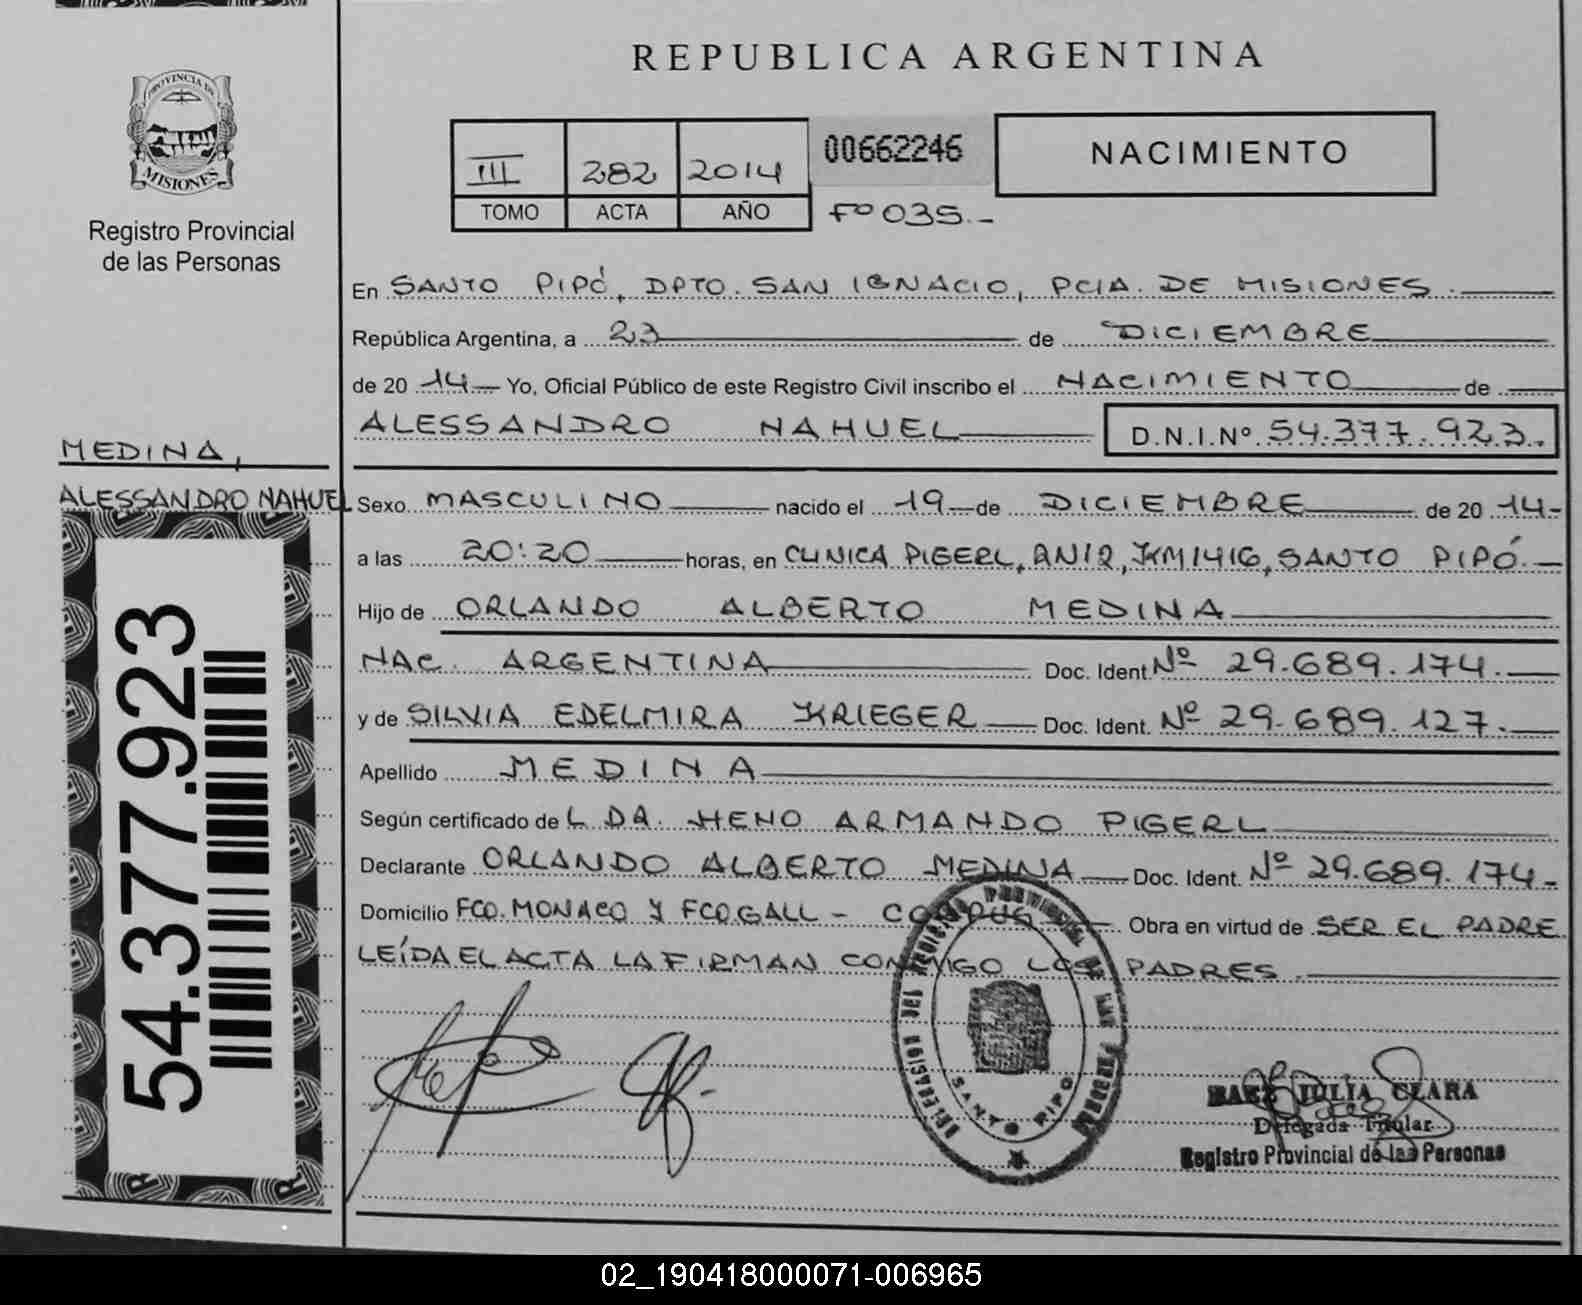 REPUBLICA ARGENTINA
PROVINCIA DE
MISIONES
Registro Provincial
de las Personas
III 282 2014 00662246 NACIMIENTO
TOMO ACTA AÑO Fº 035.-
En SANTO PIPÓ, DPTO. SAN IGNACIO, PCIA. DE MISIONES.
República Argentina, a 23 de DICIEMBRE
de 20 14 Yo, Oficial Público de este Registro Civil inscribo el NACIMIENTO de
ALESSANDRO NAHUEL D.N.I.Nº. 54.377.923.
MEDINA,
ALESSANDRO NAHUEL
54.377.923
Sexo MASCULINO nacido el 19 de DICIEMBRE de 20 14-
a las 20:20 horas, en CLINICA PIGERL, RN12, KM1416, SANTO PIPÓ.
Hijo de ORLANDO ALBERTO MEDINA
NAC. ARGENTINA Doc. Ident Nº 29.689.174.
y de SILVIA EDELMIRA KRIEGER Doc. Ident. Nº 29.689.127.
Apellido MEDINA
Según certificado de L DR. HENO ARMANDO PIGERL
Declarante ORLANDO ALBERTO MEDINA Doc. Ident. Nº 29.689.174-
Domicilio FCO. MONACO Y FCO GALL - CORPUS Obra en virtud de SER EL PADRE
LEÍDA EL ACTA LA FIRMAN CONMIGO LOS PADRES.
DELEGACION DEL REGISTRO PROVINCIAL DE LAS PERSONAS
SANTO PIPO
BAEZ JULIA CLARA
Delegada Titular
Registro Provincial de las Personas
02_190418000071-006965